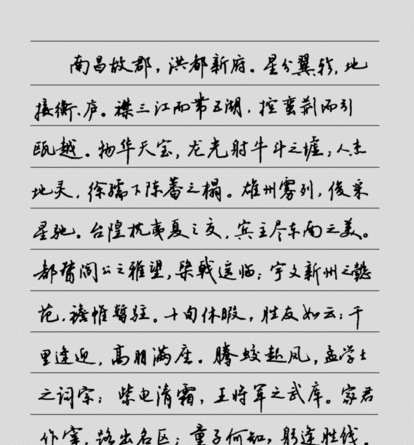 南昌故郡，洪都新府。星分翼轸，地
接衡庐。襟三江而带五湖，控蛮荆而引
瓯越。物华天宝，龙光射牛斗之墟；人杰
地灵，徐孺下陈蕃之榻。雄州雾列，俊采
星驰。台隍枕夷夏之交，宾主尽东南之美。
都督阎公之雅望，棨戟遥临；宇文新州之懿
范，襜帷暂驻。十旬休暇，胜友如云；千
里逢迎，高朋满座。腾蛟起凤，孟学士
之词宗；紫电清霜，王将军之武库。家君
作宰，路出名区；童子何知，躬逢胜饯。